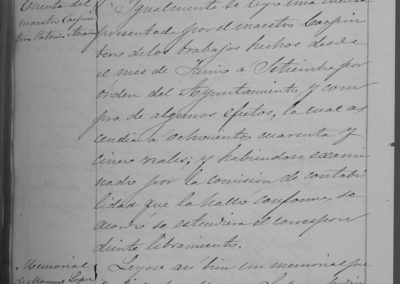 Cuenta del
maestro Carpin
tero Patricio
Igualmente se leyó una cuenta
presentada por el maestro Carpin
tero de los trabajos hechos desde
el mes de Junio a Setiembre por
orden del Ayuntamiento y com
pra de algunos efectos, la cual as
cendia a ochocientos cuarenta y
cinco reales; y habiendose exami
nado por la comision de contabi
lidad que la hallo conforme, se
acordó se estendiera el correspon
diente libramiento.
Memorial
Leyose asi bien un memorial que